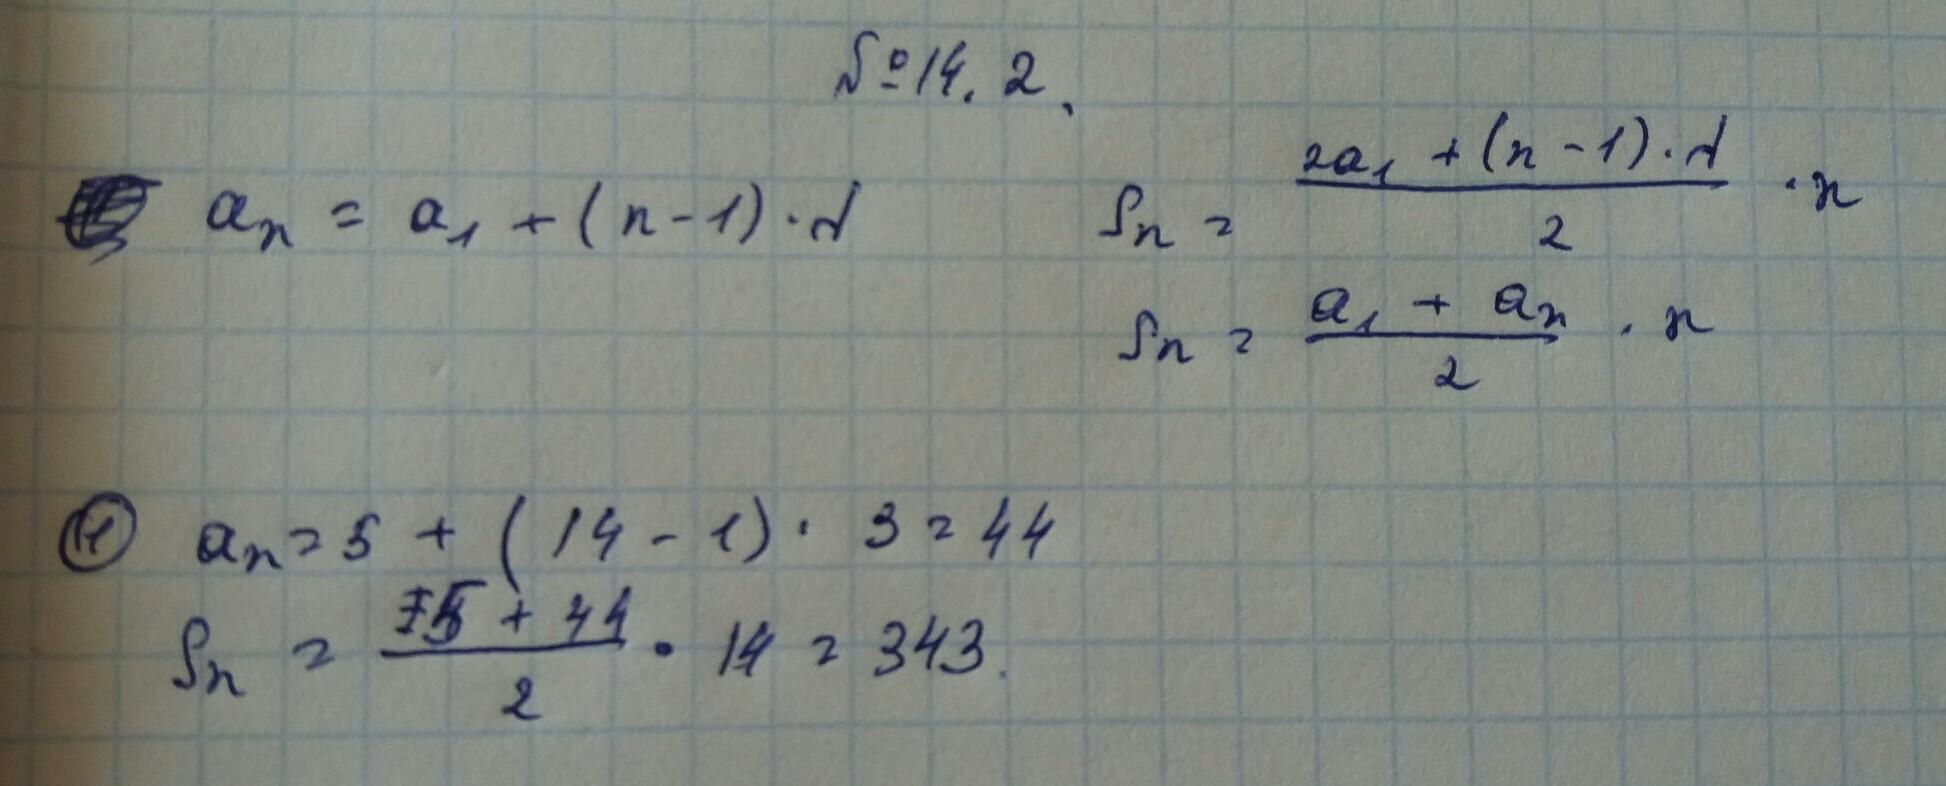 №14.2.
aₙ = a₁ + (n-1)·d
Sₙ = (2a₁ + (n-1)·d)/2 · n
Sₙ = (a₁ + aₙ)/2 · n
① aₙ = 5 + (14 - 1) · 3 = 44
Sₙ = (5 + 44)/2 · 14 = 343.